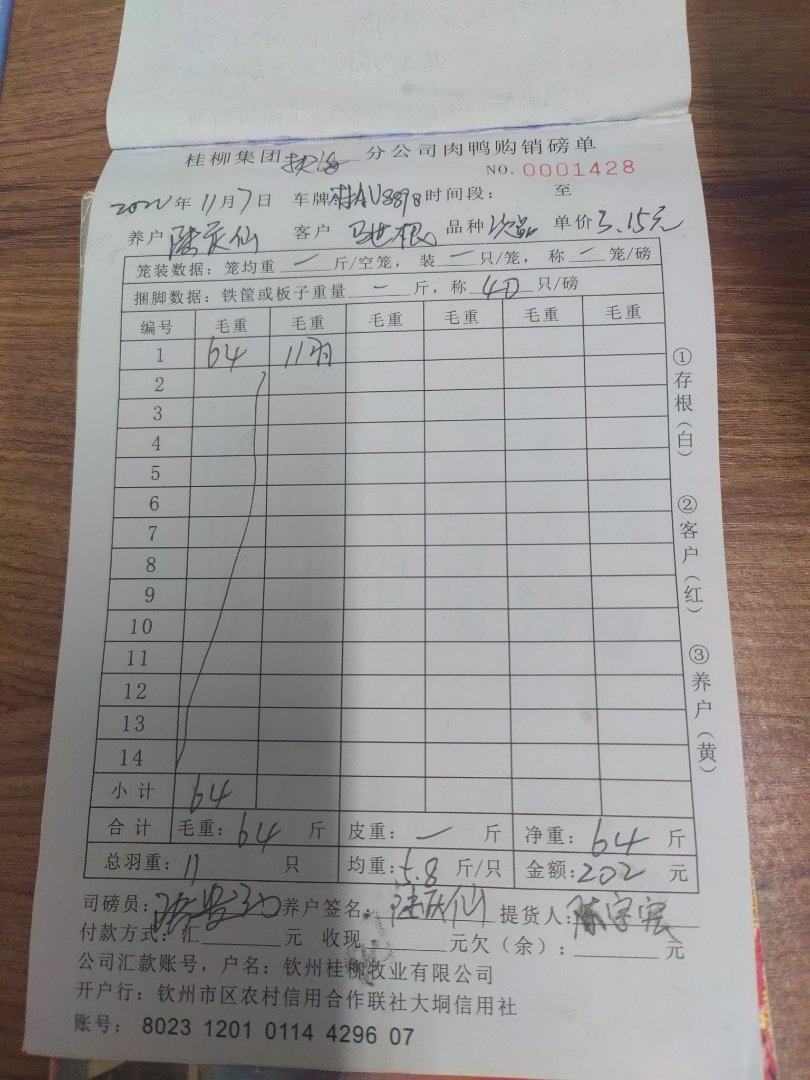 桂柳集团 分公司肉鸭购销磅单
NO. 0001428
2022年11月7日 车牌桂AU8898时间段： 至
养户 陆庆仙 客户 马世根 品种 次品 单价3.15元
笼装数据：笼均重 一 斤/空笼，装 一 只/笼，称 一 笼/磅
捆脚数据：铁筐或板子重量 一 斤，称 40 只/磅
编号 毛重 毛重 毛重 毛重 毛重 毛重
1 64 11羽
2
3
4
5
6
7
8
9
10
11
12
13
14
小计 64
合计 毛重：64 斤 皮重：一 斤 净重：64 斤
总羽重：11 只 均重：5.8 斤/只 金额：202 元
司磅员： 养户签名：陆庆仙 提货人：陈宗宏
付款方式：汇 元 收现 元欠（余）： 元
公司汇款账号，户名：钦州桂柳牧业有限公司
开户行：钦州市区农村信用合作联社大垌信用社
账号：8023 1201 0114 4296 07
①存根（白）
②客户（红）
③养户（黄）